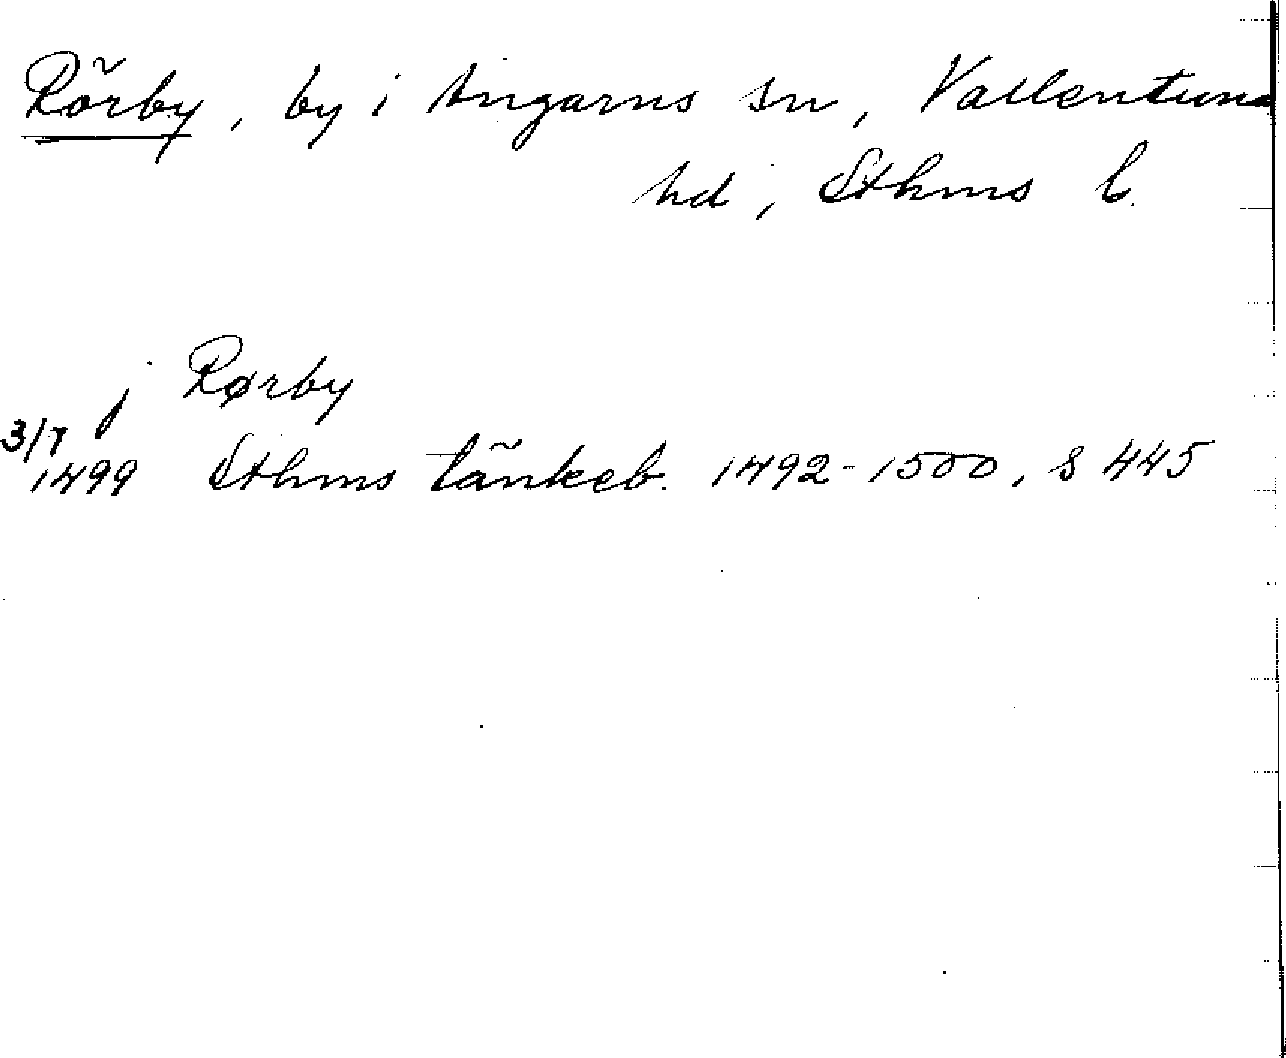 Rörby, by i Angarns sn, Vallentuna
hd, Sthms l.
j Rørby
3/7
1499 Sthms tänkeb. 1492-1500, s 445